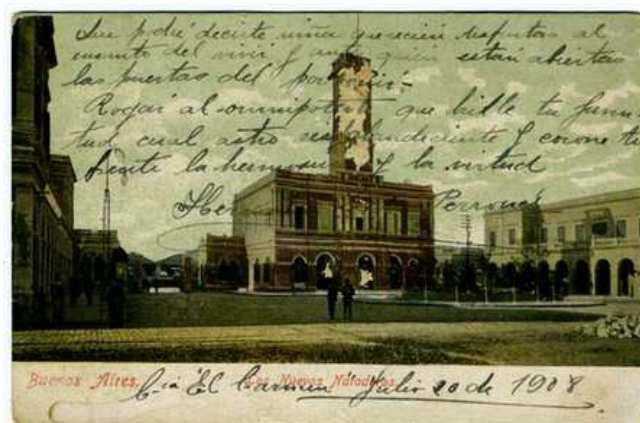 Que podré decirte niña que recien despertas al
encanto del vivir y ante quien estan abiertas
las puertas del
Rogar al omnipotente que brille tu juven-
tud cual astro resplandeciente y corone tu
frente la hermosura y la virtud
Perrone
Buenos Aires. Los Nuevos Mataderos.
Cia El Carmen Julio 20 de 1908